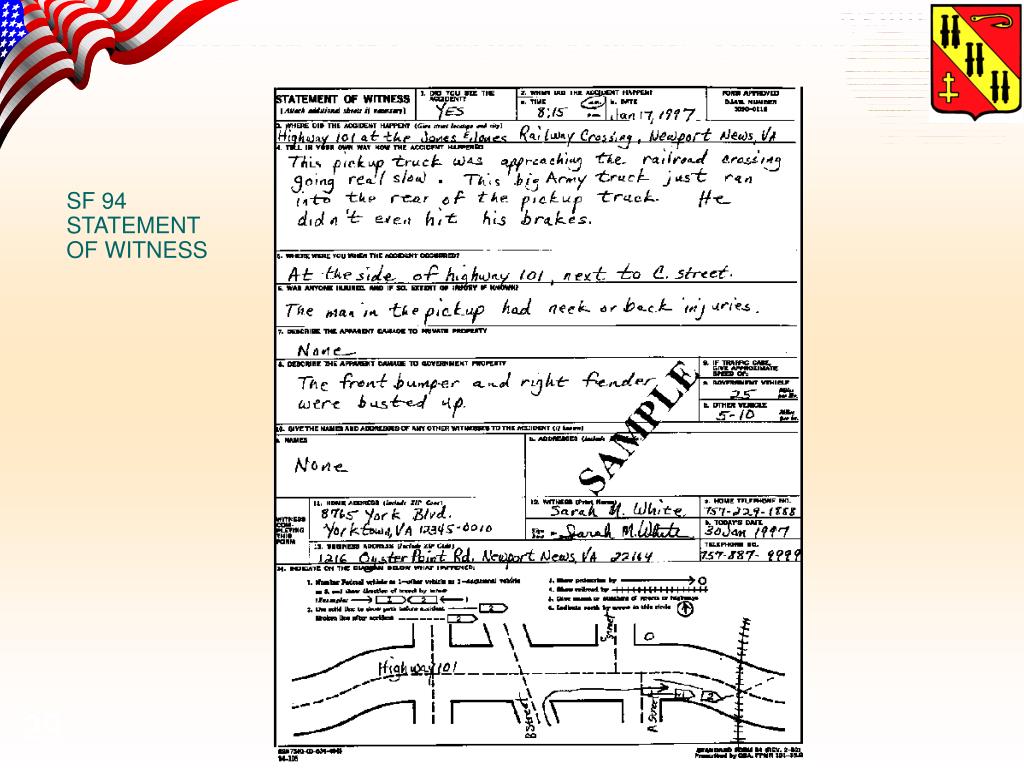 SF 94
STATEMENT
OF WITNESS
STATEMENT OF WITNESS
(Attach additional sheets if necessary)
1. DID YOU SEE THE ACCIDENT?
YES
2. WHEN DID THE ACCIDENT HAPPEN?
a. TIME
8:15
b. DATE
Jan 17, 1997
FORM APPROVED
O.M.B. NUMBER
3090-0118
3. WHERE DID THE ACCIDENT HAPPEN? (Give street location and city)
Highway 101 at the Jones & Jones Railway Crossing, Newport News, VA
4. TELL IN YOUR OWN WAY HOW THE ACCIDENT HAPPENED
This pickup truck was approaching the railroad crossing
going real slow. This big Army truck just ran
into the rear of the pickup truck. He
didn't even hit his brakes.
5. WHERE WERE YOU WHEN THE ACCIDENT OCCURRED?
At the side of highway 101, next to C. street.
6. WAS ANYONE INJURED, AND IF SO, EXTENT OF INJURY IF KNOWN?
The man in the pickup had neck or back injuries.
7. DESCRIBE THE APPARENT DAMAGE TO PRIVATE PROPERTY
None
8. DESCRIBE THE APPARENT DAMAGE TO GOVERNMENT PROPERTY
The front bumper and right fender
were busted up.
9. IF TRAFFIC CASE,
GIVE APPROXIMATE
SPEED OF:
a. GOVERNMENT VEHICLE
25 Miles per hr.
b. OTHER VEHICLE
5-10 Miles per hr.
SAMPLE
10. GIVE THE NAMES AND ADDRESSES OF ANY OTHER WITNESSES TO THE ACCIDENT (if known)
a. NAMES
None
b. ADDRESSES (Include
WITNESS
COM-
PLETING
THIS
FORM
11. HOME ADDRESS (Include ZIP Code)
8765 York Blvd.
Yorktown, VA 12345-0010
12. WITNESS (Print Name)
Sarah M. White
Sarah M. White
a. HOME TELEPHONE NO.
757-229-1888
b. TODAY'S DATE
30 Jan 1997
13. BUSINESS ADDRESS (Include ZIP Code)
1216 Oyster Point Rd, Newport News, VA 22164
TELEPHONE NO.
757-887-9999
14. INDICATE ON THE DIAGRAM BELOW WHAT HAPPENED:
1. Number Federal vehicle as 1—other vehicle as 2—additional vehicle
as 3, and show direction of travel by arrow
(Example: 1 2 )
2. Use solid line to show path before accident 2
Broken line after accident 2
3. Show pedestrian by
4. Show railroad by
5. Give names or numbers of streets or highways
6. Indicate north by arrow in this circle
Highway 101
C Street
B Street
A Street
1 2
STANDARD FORM 94 (REV. 2-83)